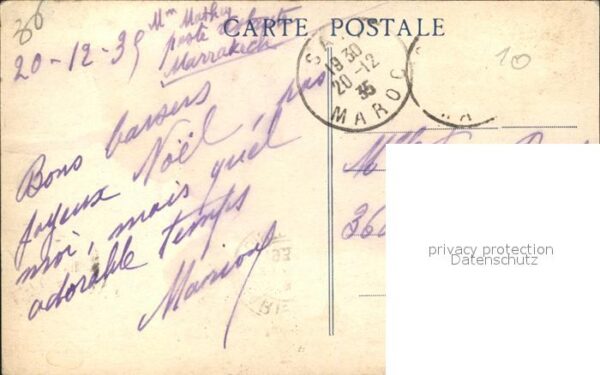 36
CARTE POSTALE
20-12-35
Mme
poste
Marrakech
SA
1930
20-12
35
MAROC
10
Bons baisers
Joyeux Noël, pas
moi, mais quel
adorable temps
Marion
36
privacy protection
Datenschutz